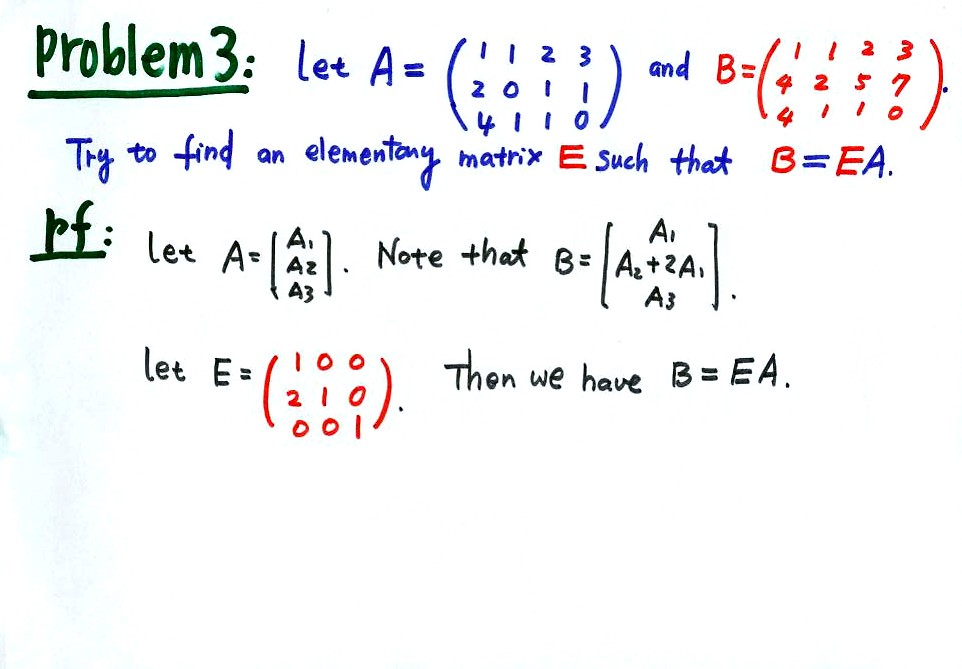 Problem 3: let A = ( 1 1 2 3 ; 2 0 1 1 ; 4 1 1 0 ) and B = ( 1 1 2 3 ; 4 2 5 7 ; 4 1 1 0 ).
Try to find an elementany matrix E such that B = EA.
pf: let A = [ A1 ; A2 ; A3 ]. Note that B = [ A1 ; A2+2A1 ; A3 ].
let E = ( 1 0 0 ; 2 1 0 ; 0 0 1 ). Then we have B = EA.